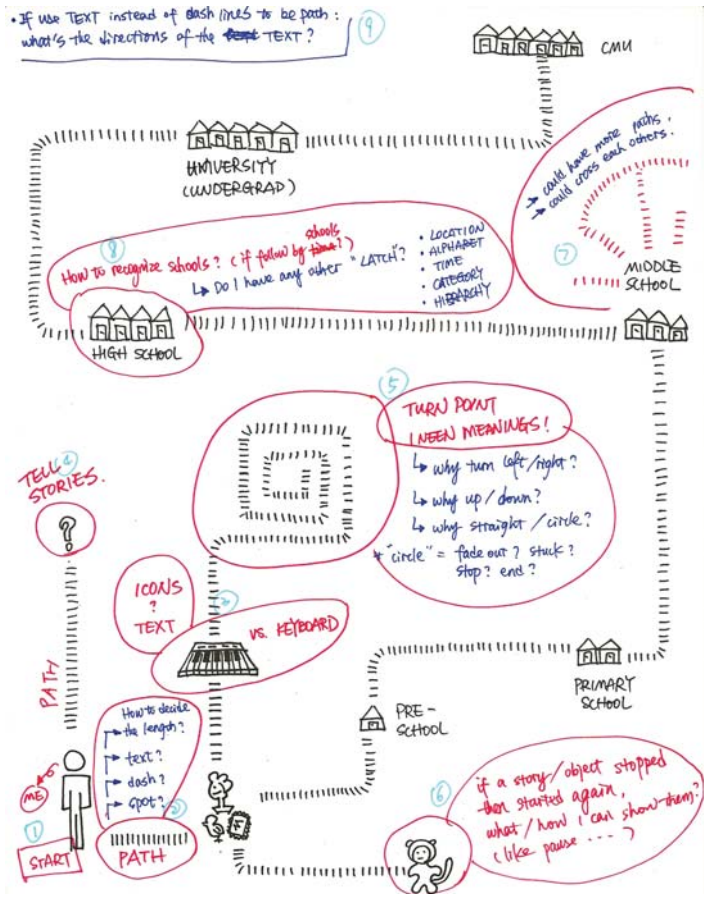 • If use TEXT instead of dash lines to be path :
what's the directions of the TEXT ?
9
CMU
UNIVERSITY
(UNDERGRAD)
→ could have more paths.
→ could cross each others.
7
MIDDLE
SCHOOL
8
schools
How to recognize schools? (if follow by time?)
↳ Do I have any other "LATCH"?
• LOCATION
• ALPHABET
• TIME
• CATEGORY
• HIERARCHY
HIGH SCHOOL
5
TURN POINT
NEEN MEANINGS!
↳ why turn left/right?
↳ why up/down?
↳ why straight/circle?
* "circle" = fade out? stuck?
stop? end?
4
TELL
STORIES.
?
PATH
ICONS
?
TEXT
VS. KEYBOARD
How to decide
the length?
→ text?
→ dash?
→ spot?
PATH
ME
1
START
PRE-
SCHOOL
PRIMARY
SCHOOL
6
if a story/object stopped
then started again,
what/how I can show them?
(like pause ....)